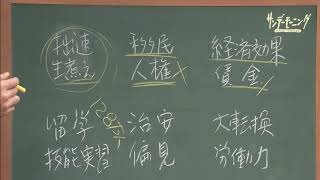 サンデーモーニング
拙速 移民 経済効果
生煮え 人権 債金
留学 128万人 治安 大転換
技能実習 偏見 労働力